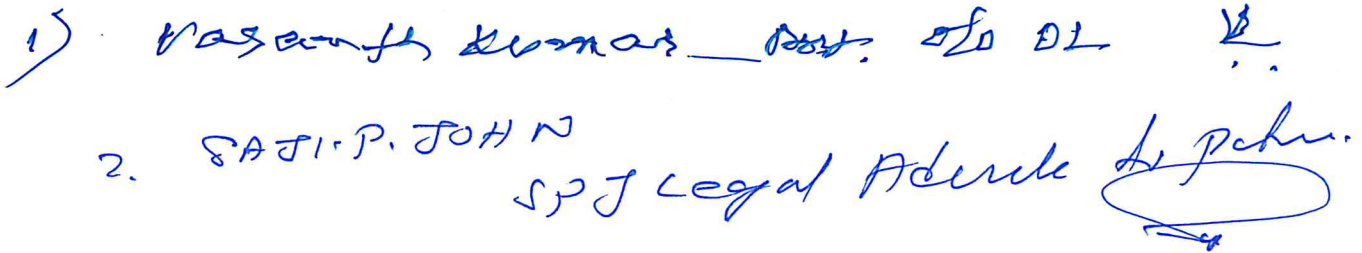 1) Vasanth Kumar_ Asst. o/o OL
2. SAJI. P. JOHN
SPJ Legal Advocate